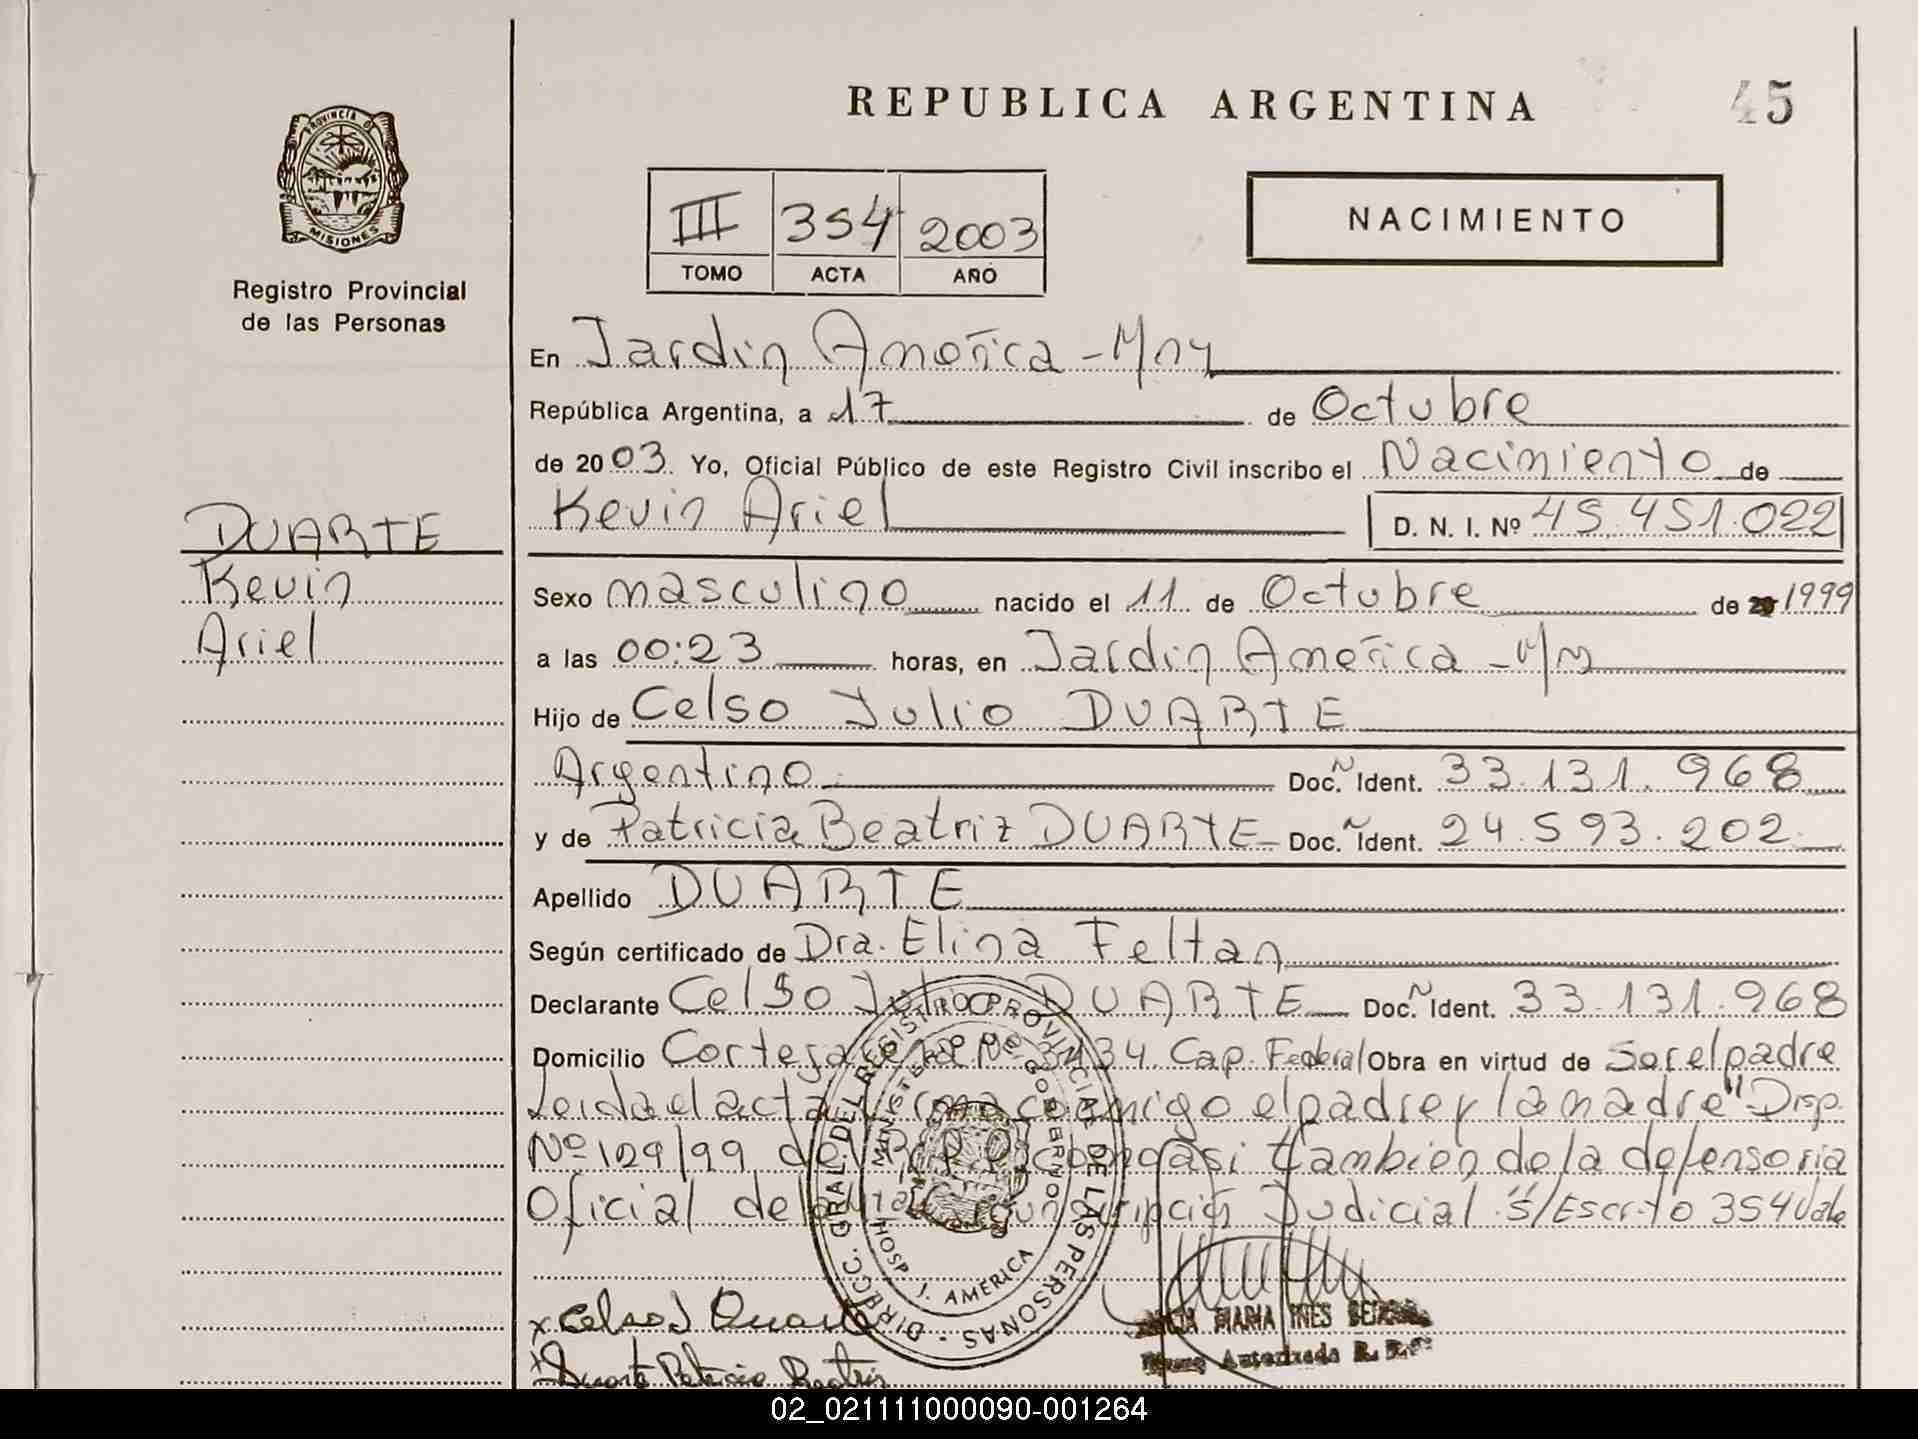 REPUBLICA ARGENTINA
45
PROVINCIA DE
MISIONES
Registro Provincial
de las Personas
III 354 2003
TOMO ACTA AÑO
NACIMIENTO
En Jardin America - Mnes
República Argentina, a 17 de Octubre
de 2003. Yo, Oficial Público de este Registro Civil inscribo el Nacimiento de
Kevin Ariel D. N. I. Nº 45.451.022
DUARTE
Kevin
Ariel
Sexo masculino nacido el 11 de Octubre de 1999
a las 00:23 horas, en Jardin America - Mn
Hijo de Celso Julio DUARTE
Argentino Doc. Ident. 33.131.968
y de Patricia Beatriz DUARTE Doc. Ident. 24.593.202
Apellido DUARTE
Según certificado de Dra. Elina Feltan
Declarante Celso Julio DUARTE Doc. Ident. 33.131.968
Domicilio Nº 3434. Cap. Federal Obra en virtud de Ser el padre
Leida el acta firma conmigo el padre y la madre" Disp.
Nº 129/99 del R.P.P. como asi tambien de la defensoria
Oficial de la Judicial "s/Escrito 354 Vale
DIRECC. GRAL. DEL REGISTRO PROVINCIAL DE LAS PERSONAS
MINISTERIO DE GOBIERNO
HOSP. J. AMÉRICA
x Celso J Duarte
x Duarte Patricia Beatriz
MARIA INES
Autorizada R. P.P.
02_021111000090-001264